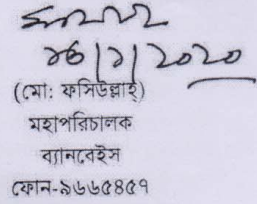 (মো: ফসিউল্লাহ্)
মহাপরিচালক
ব্যানবেইস
ফোন-৯৬৬৫৪৫৭